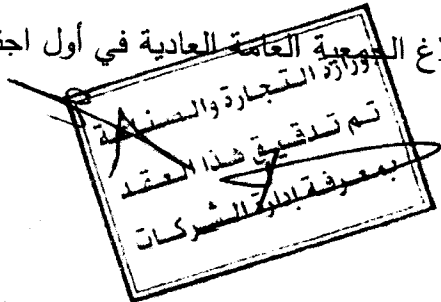 غ الجمعية العامة العادية في أول اجت
وزارة التجارة والصناعة
تم تدقيق هذا العقد
بمعرفة إدارة الشركات